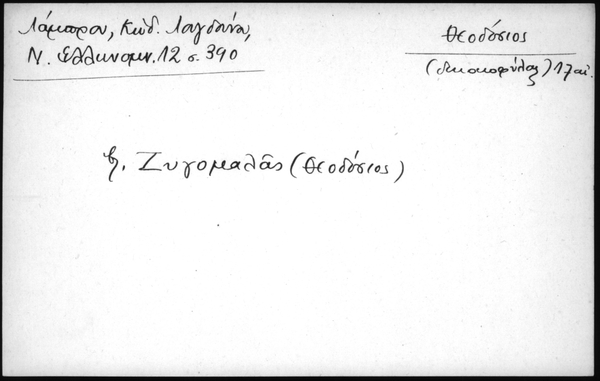 Λάμπρου, Κώδ. Λαγδάνα,
Ν. Ελληνομν. 12 σ. 390
Θεοδόσιος
(δικαιοφύλαξ) 17 αἰ.
Ζυγομαλᾶς (Θεοδόσιος)